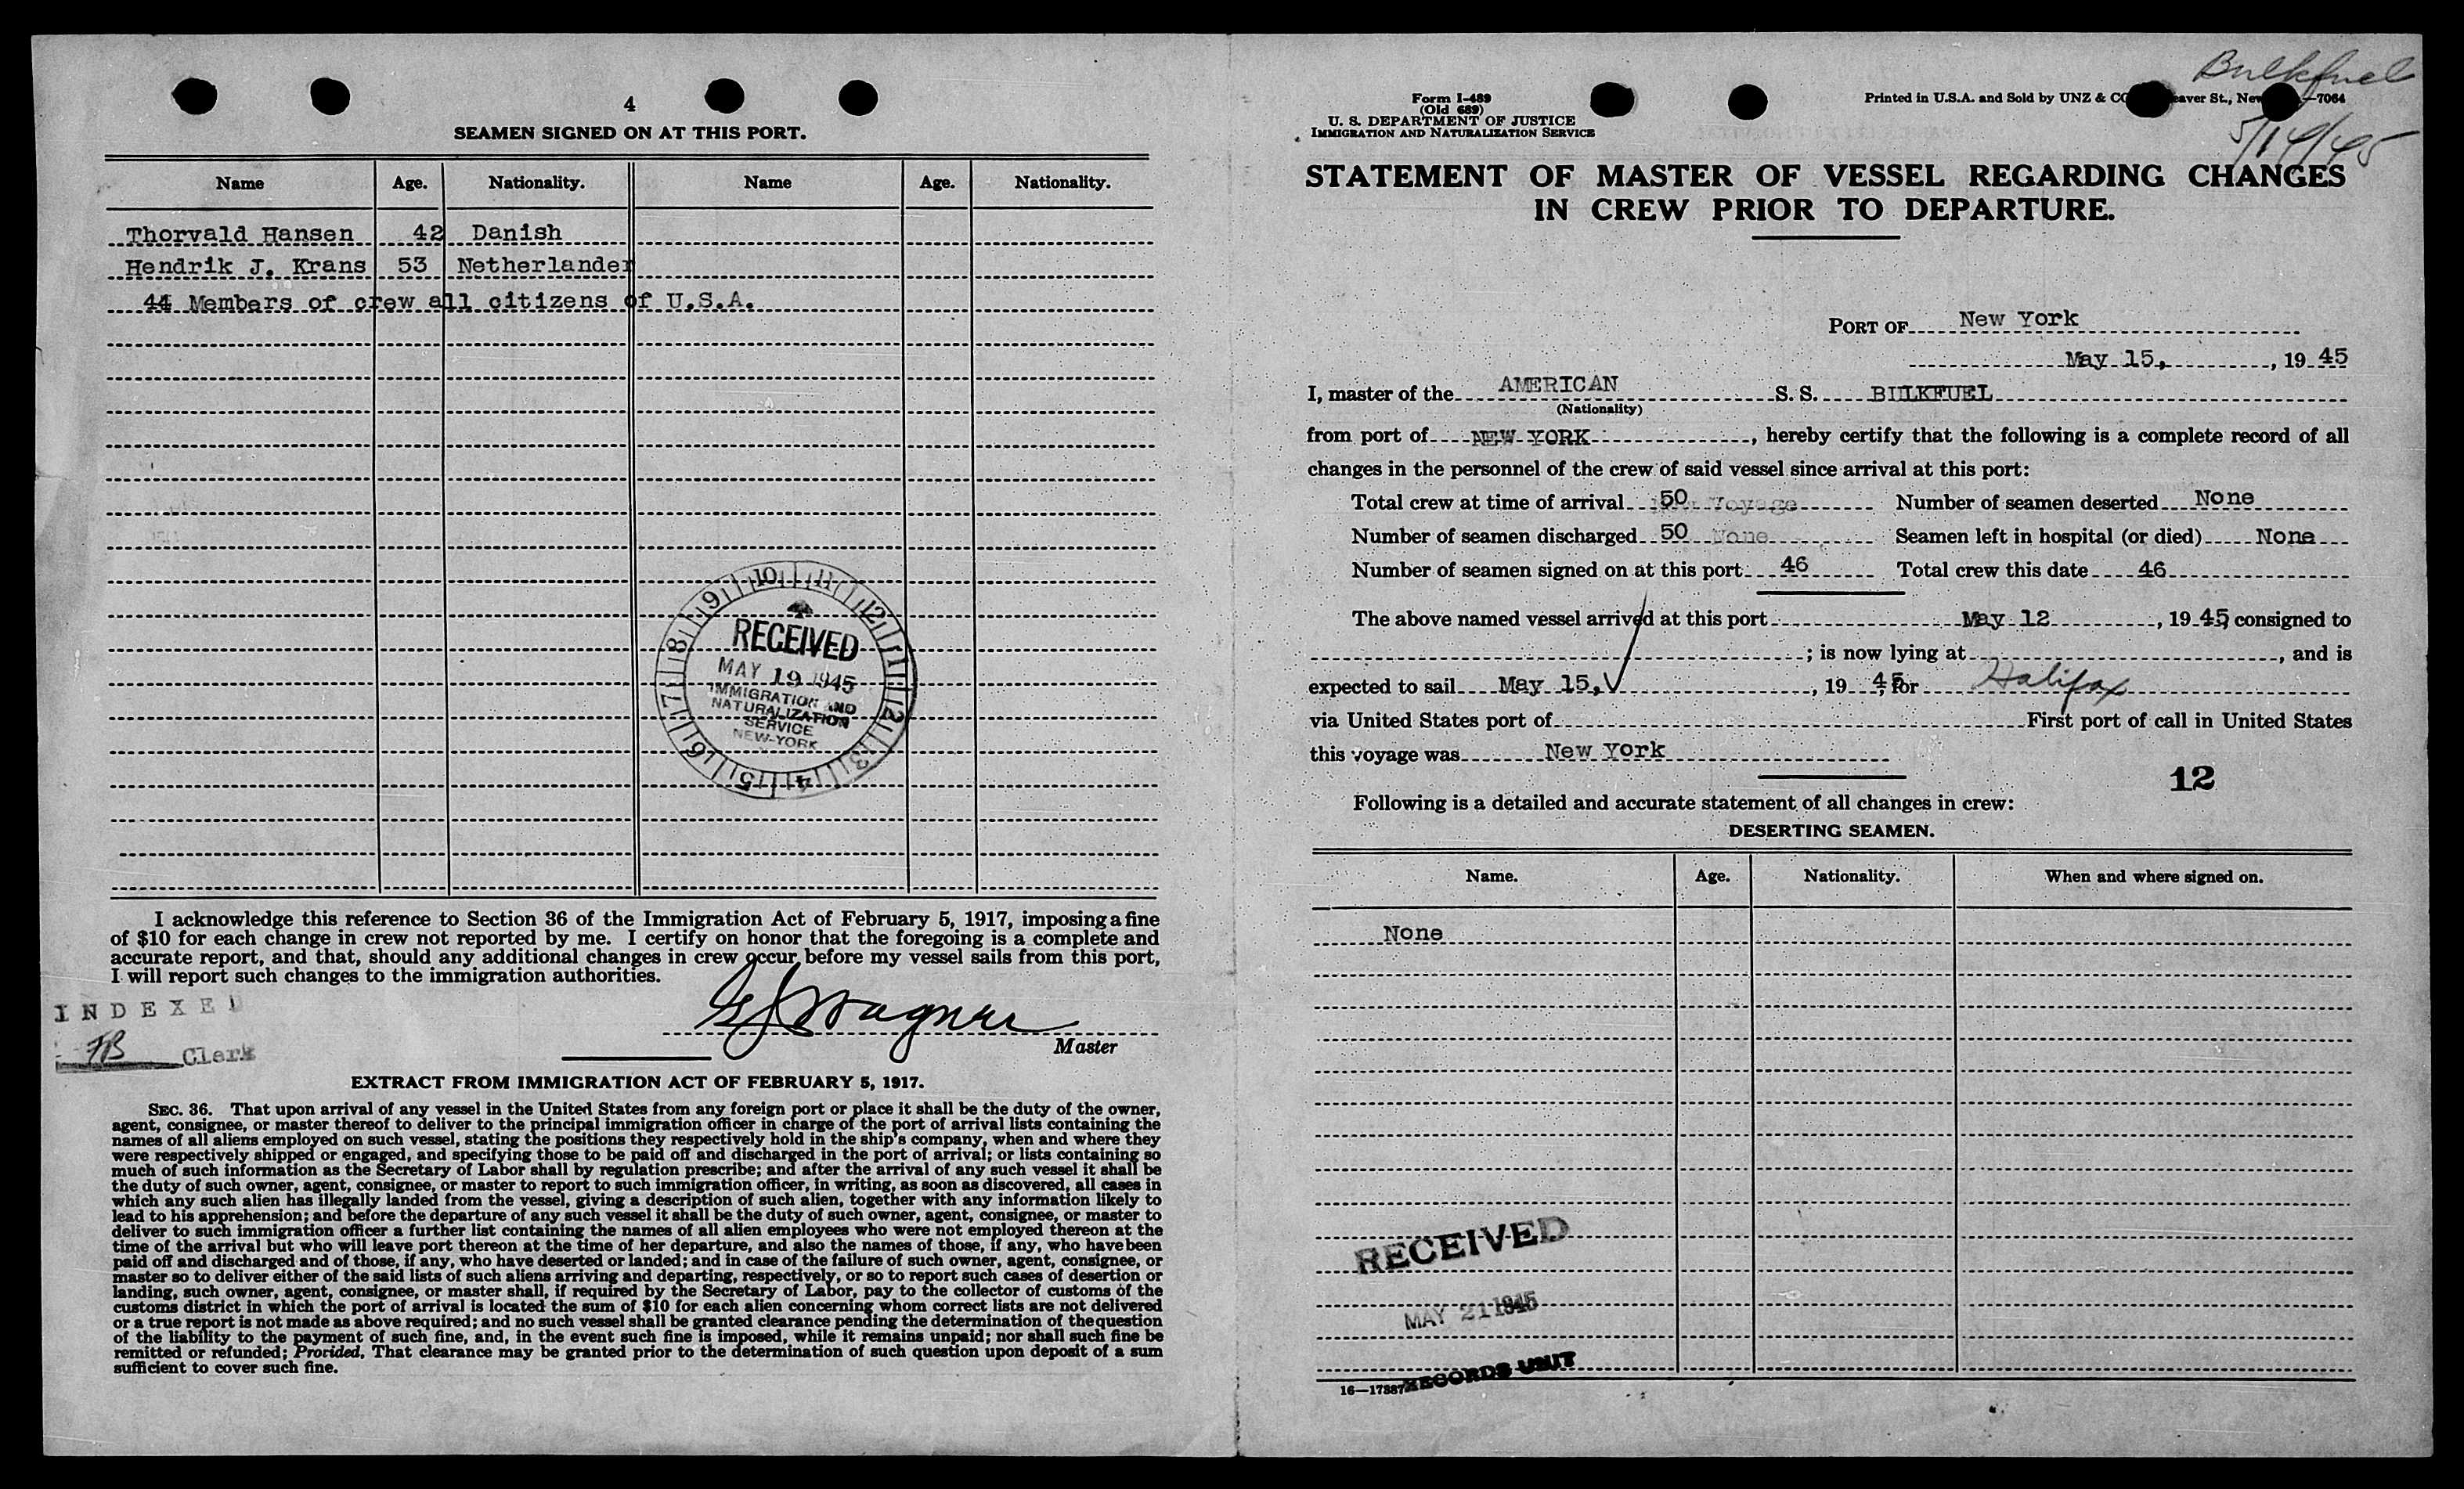 4
SEAMEN SIGNED ON AT THIS PORT.
Name Age. Nationality. Name Age. Nationality.
Thorvald Hansen 42 Danish
Hendrik J. Krans 53 Netherlander
44 Members of crew all citizens of U.S.A.
9 10 11 12 1 2 3 4 5 6 7 8
RECEIVED
MAY 19 1945
IMMIGRATION AND
NATURALIZATION
SERVICE
NEW-YORK
I acknowledge this reference to Section 36 of the Immigration Act of February 5, 1917, imposing a fine
of $10 for each change in crew not reported by me. I certify on honor that the foregoing is a complete and
accurate report, and that, should any additional changes in crew occur before my vessel sails from this port,
I will report such changes to the immigration authorities.
INDEXED
FB Clerk
G J Wagner
Master
EXTRACT FROM IMMIGRATION ACT OF FEBRUARY 5, 1917.
SEC. 36. That upon arrival of any vessel in the United States from any foreign port or place it shall be the duty of the owner,
agent, consignee, or master thereof to deliver to the principal immigration officer in charge of the port of arrival lists containing the
names of all aliens employed on such vessel, stating the positions they respectively hold in the ship's company, when and where they
were respectively shipped or engaged, and specifying those to be paid off and discharged in the port of arrival; or lists containing so
much of such information as the Secretary of Labor shall by regulation prescribe; and after the arrival of any such vessel it shall be
the duty of such owner, agent, consignee, or master to report to such immigration officer, in writing, as soon as discovered, all cases in
which any such alien has illegally landed from the vessel, giving a description of such alien, together with any information likely to
lead to his apprehension; and before the departure of any such vessel it shall be the duty of such owner, agent, consignee, or master to
deliver to such immigration officer a further list containing the names of all alien employees who were not employed thereon at the
time of the arrival but who will leave port thereon at the time of her departure, and also the names of those, if any, who have been
paid off and discharged and of those, if any, who have deserted or landed; and in case of the failure of such owner, agent, consignee, or
master so to deliver either of the said lists of such aliens arriving and departing, respectively, or so to report such cases of desertion or
landing, such owner, agent, consignee, or master shall, if required by the Secretary of Labor, pay to the collector of customs of the
customs district in which the port of arrival is located the sum of $10 for each alien concerning whom correct lists are not delivered
or a true report is not made as above required; and no such vessel shall be granted clearance pending the determination of the question
of the liability to the payment of such fine, and, in the event such fine is imposed, while it remains unpaid; nor shall such fine be
remitted or refunded; Provided, That clearance may be granted prior to the determination of such question upon deposit of a sum
sufficient to cover such fine.
Bulkfuel
5/19/45
Form I-489
(Old 689)
U. S. DEPARTMENT OF JUSTICE
IMMIGRATION AND NATURALIZATION SERVICE
Printed in U.S.A. and Sold by UNZ & CO. St., New —7064
STATEMENT OF MASTER OF VESSEL REGARDING CHANGES
IN CREW PRIOR TO DEPARTURE.
PORT OF New York
May 15, , 19 45
I, master of the AMERICAN S. S. BULKFUEL
(Nationality)
from port of NEW YORK , hereby certify that the following is a complete record of all
changes in the personnel of the crew of said vessel since arrival at this port:
Total crew at time of arrival 50 Voyage Number of seamen deserted None
Number of seamen discharged 50 None Seamen left in hospital (or died) None
Number of seamen signed on at this port 46 Total crew this date 46
The above named vessel arrived at this port May 12 , 19 45 consigned to
; is now lying at , and is
expected to sail May 15, , 19 45, for Halifax
via United States port of First port of call in United States
this voyage was New York
12
Following is a detailed and accurate statement of all changes in crew:
DESERTING SEAMEN.
Name. Age. Nationality. When and where signed on.
None
RECEIVED
MAY 21 1945
RECORDS UNIT
16—17387